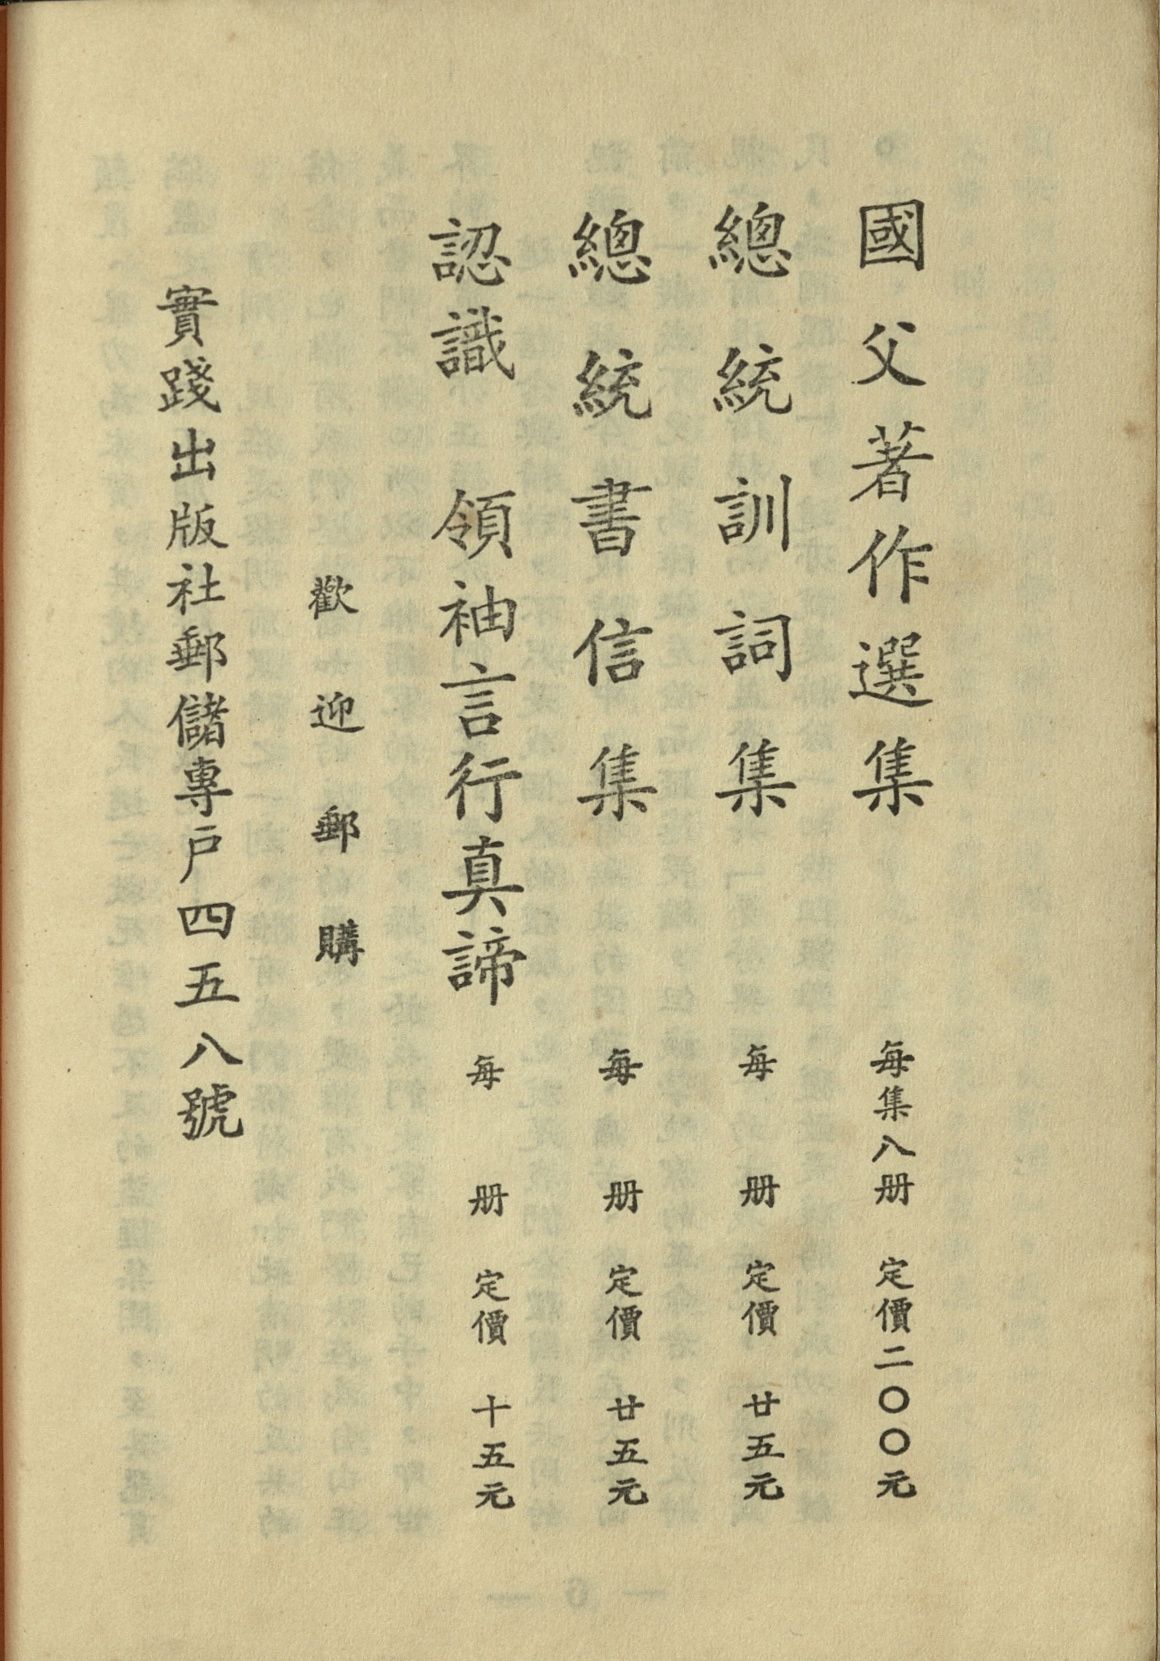 國父著作選集 每集八册 定價二〇〇元
總統訓詞集 每册 定價 廿五元
總統書信集 每册 定價 廿五元
認識 領袖言行真諦 每册 定價 十五元
歡迎郵購
實踐出版社郵儲專戶四五八號